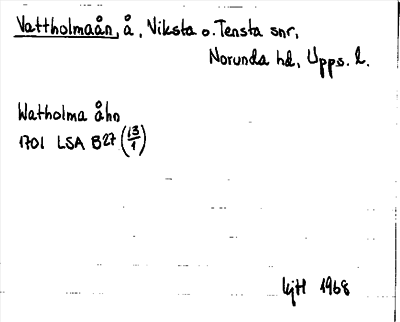 Vattholmaån, å, Viksta o. Tensta snr,
Norunda hd, Upps. l.
Watholma åhn
1701 LSA B27 (13/1)
1968